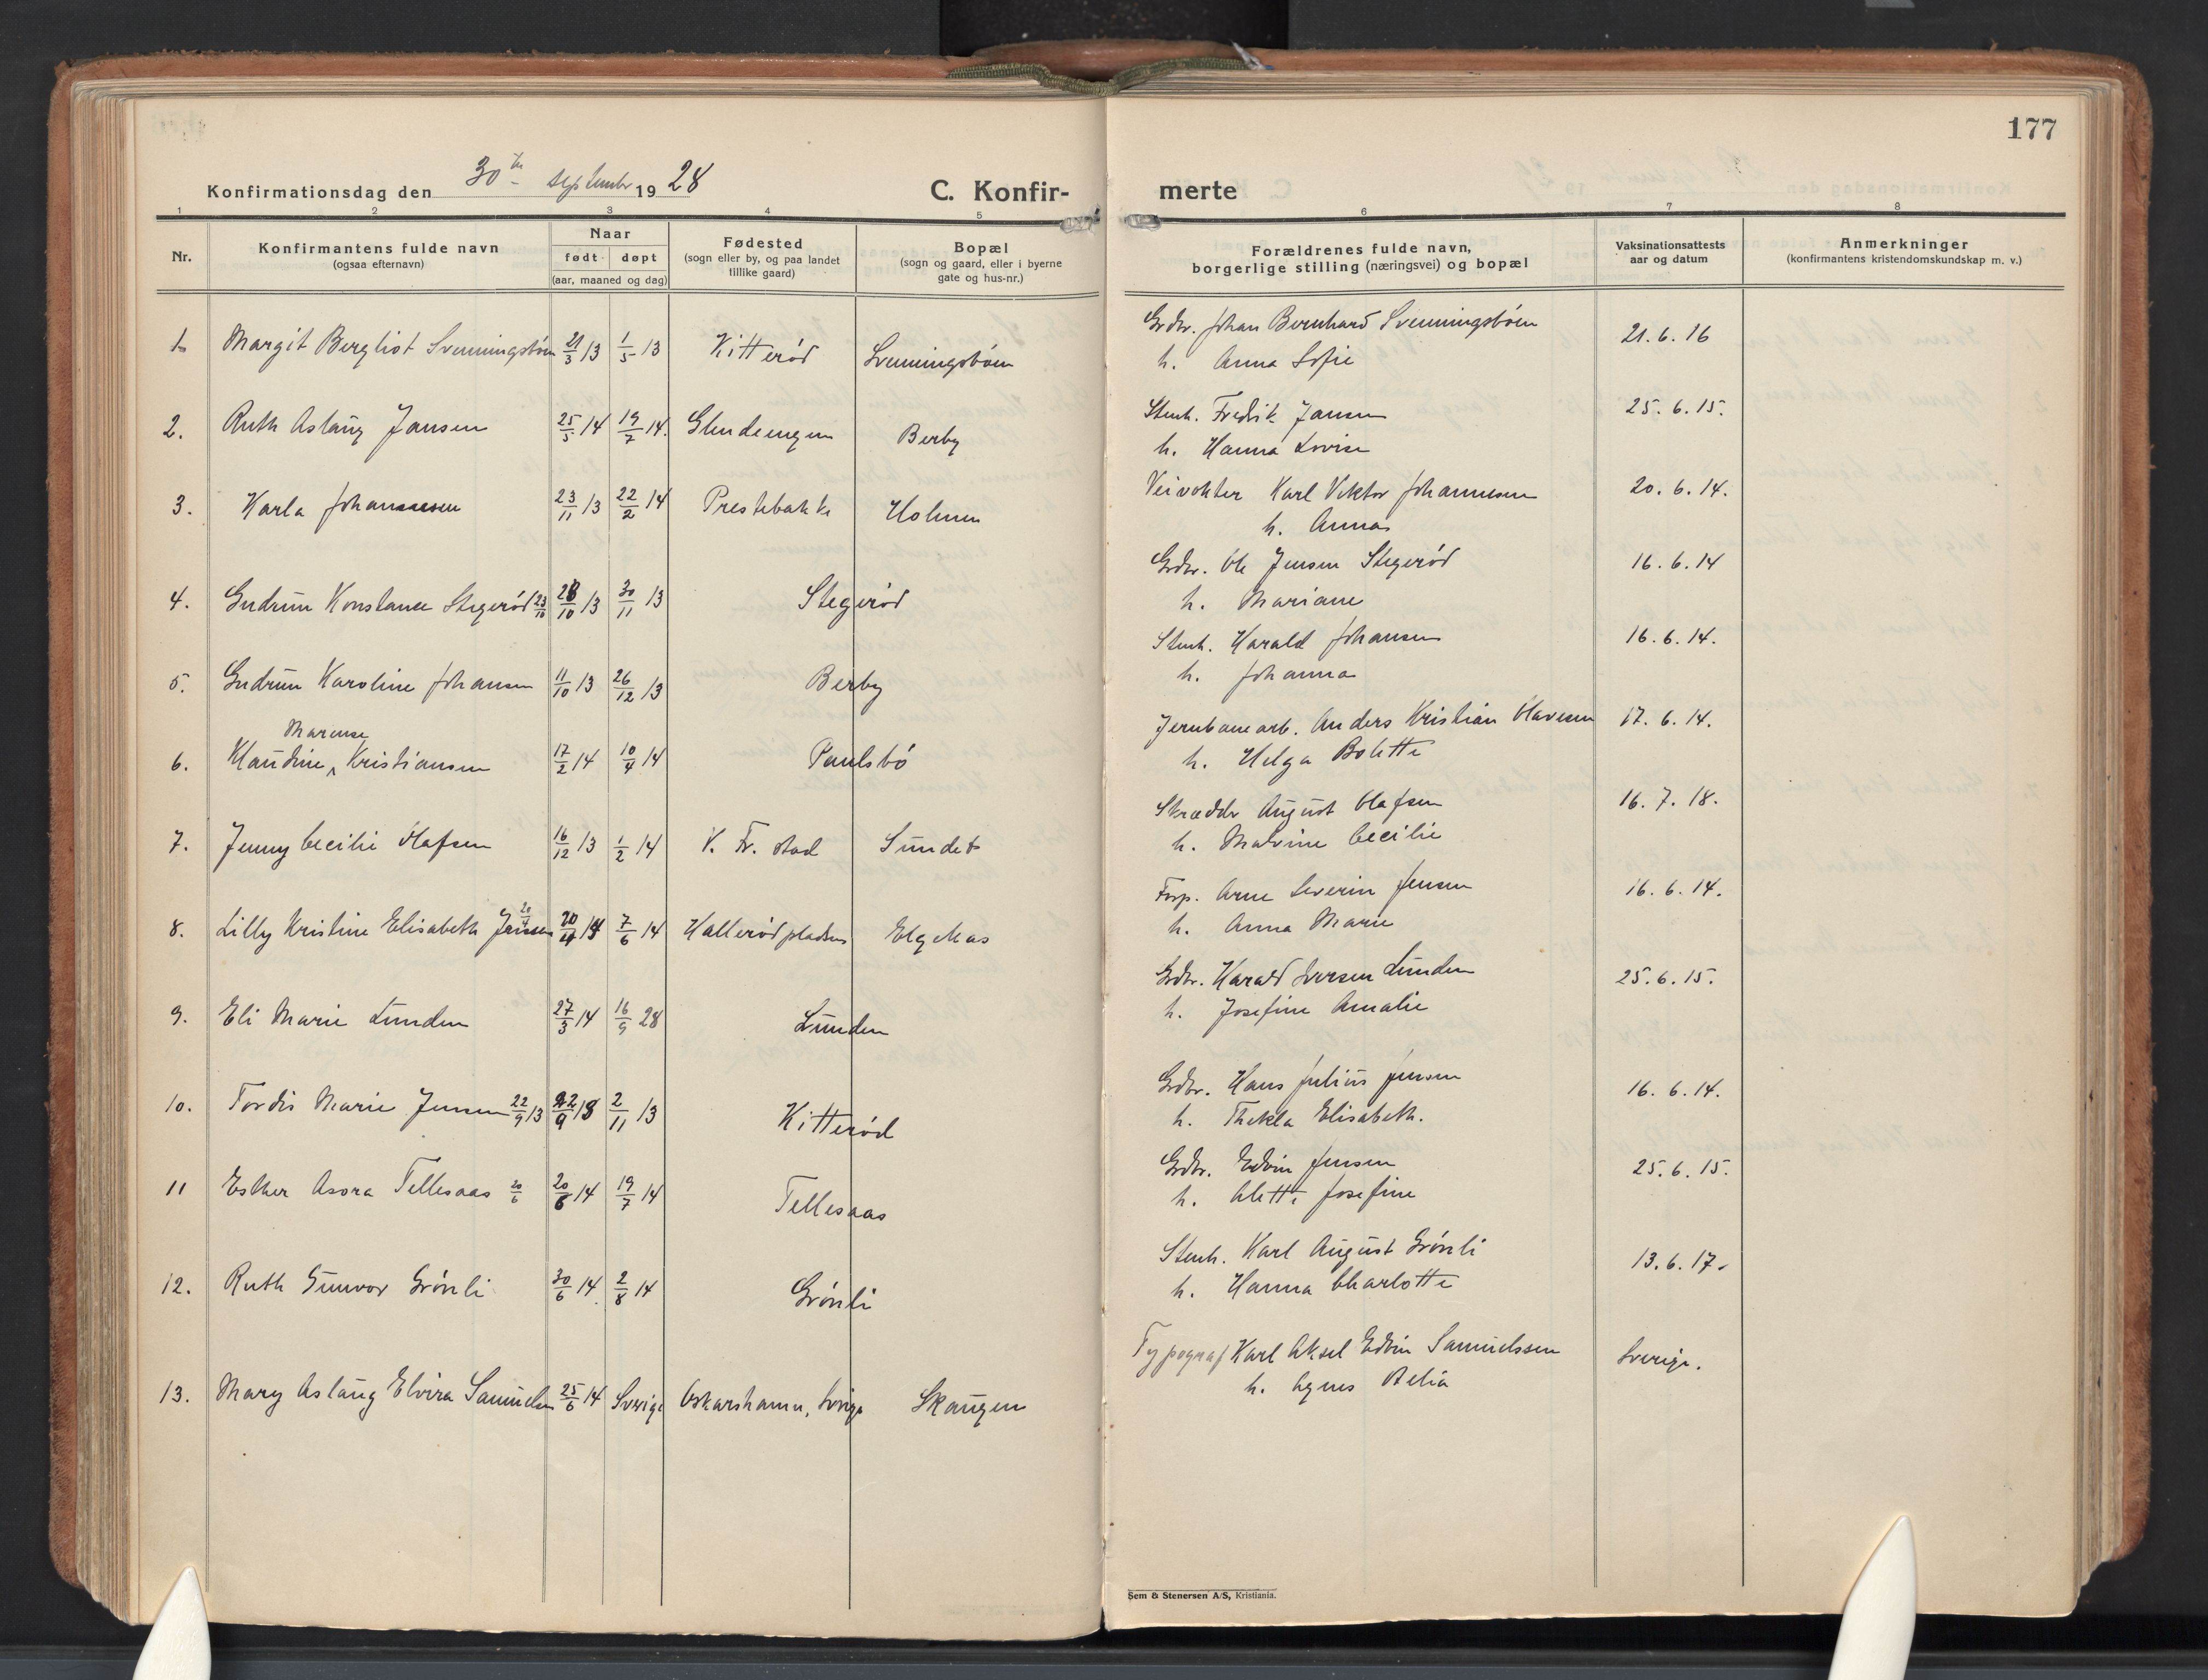 177
Konfirmationsdag den 30te september 1928
C. Konfir-
merte
1 2 3 4 5 6 7 8
Nr.
Konfirmantens fulde navn
(ogsaa efternavn)
Naar
født døpt
(aar, maaned og dag)
Fødested
(sogn eller by, og paa landet
tillike gaard)
Bopæl
(sogn og gaard, eller i byerne
gate og hus-nr.)
Forældrenes fulde navn,
borgerlige stilling (næringsvei) og bopæl
Vaksinationsattests
aar og datum
Anmerkninger
(konfirmantens kristendomskundskap m. v.)
1. Margit Bergliot Svenningsbøen 21/3 13 1/5 13 Kitterød Svenningsbøen
Grdbr. Johan Bernhard Svenningsbøen 21.6.16
h. Anna Sofie
2. Ruth Aslaug Jansen 25/5 14 19/7 14. Berby
Stenh. Fredrik Jansen 25.6.15.
h. Hanna Lovise
3. Karla Johannesen 23/11 13 22/2 14 Prestebakke Holmen
Veivokter Karl Viktor Johannesen 20.6.14.
h. Anna
4. Gudrun Konstance Stegerød 23/10 28/10 13 30/11 13 Stegerød
Grdbr. Ole Jensen Stegerød 16.6.14
h. Mariane
5. Gudrun Karoline Johansen 11/10 13 26/12 13 Berby
Stenh. Harald Johansen 16.6.14.
h. Johanna
Marense
6. Klaudine ^ Kristiansen 17/2 14 10/4 14 Paulsbø
Jernbanearb. Anders Kristian Olavesen 17.6.14.
h. Helga Bolette
7. Jenny Cecilie Olafsen 16/12 13 1/2 14 V. Fr. stad Sundet
Skrædder August Olafsen 16.7.18.
h. Malvine Cecilie
8. Lilly Kristine Elisabeth Jensen 20/4 20/4 14 7/6 14 Hallerødpladsen Elgaas
Forp. Arne Severin Jensen 16.6.14.
h. Anna Marie
9. Eli Marie Lunden 27/3 14 16/9 28 Lunden
Grdbr. Harald Iversen Lunden 25.6.15.
h. Josefine Amalie
10. Tordis Marie Jensen 22/9 13 22/9 13 2/11 13 Kitterød
Grdbr. Hans Julius Jensen 16.6.14.
h. Thekla Elisabeth.
11 Esther Asora Tellesaas 20/6 20/6 14 19/7 14 Tellesaas
Grdbr. Edvin Jensen 25.6.15.
h. Olette Josefine
12. Ruth Gunvor Grønli 30/6 14. 2/8 14 Grønli
Stenh. Karl August Grønli 13.6.17.
h. Hanna Charlotte
13. Mary Aslaug Elvira Samuelsen 25/6 14 Sverige Oskarshamn, Sverige Skaugen
Typograf Karl Aksel Edvin Samuelssen Sverige.
h. Agnes Delia
Sem & Stenersen A/S, Kristiania.